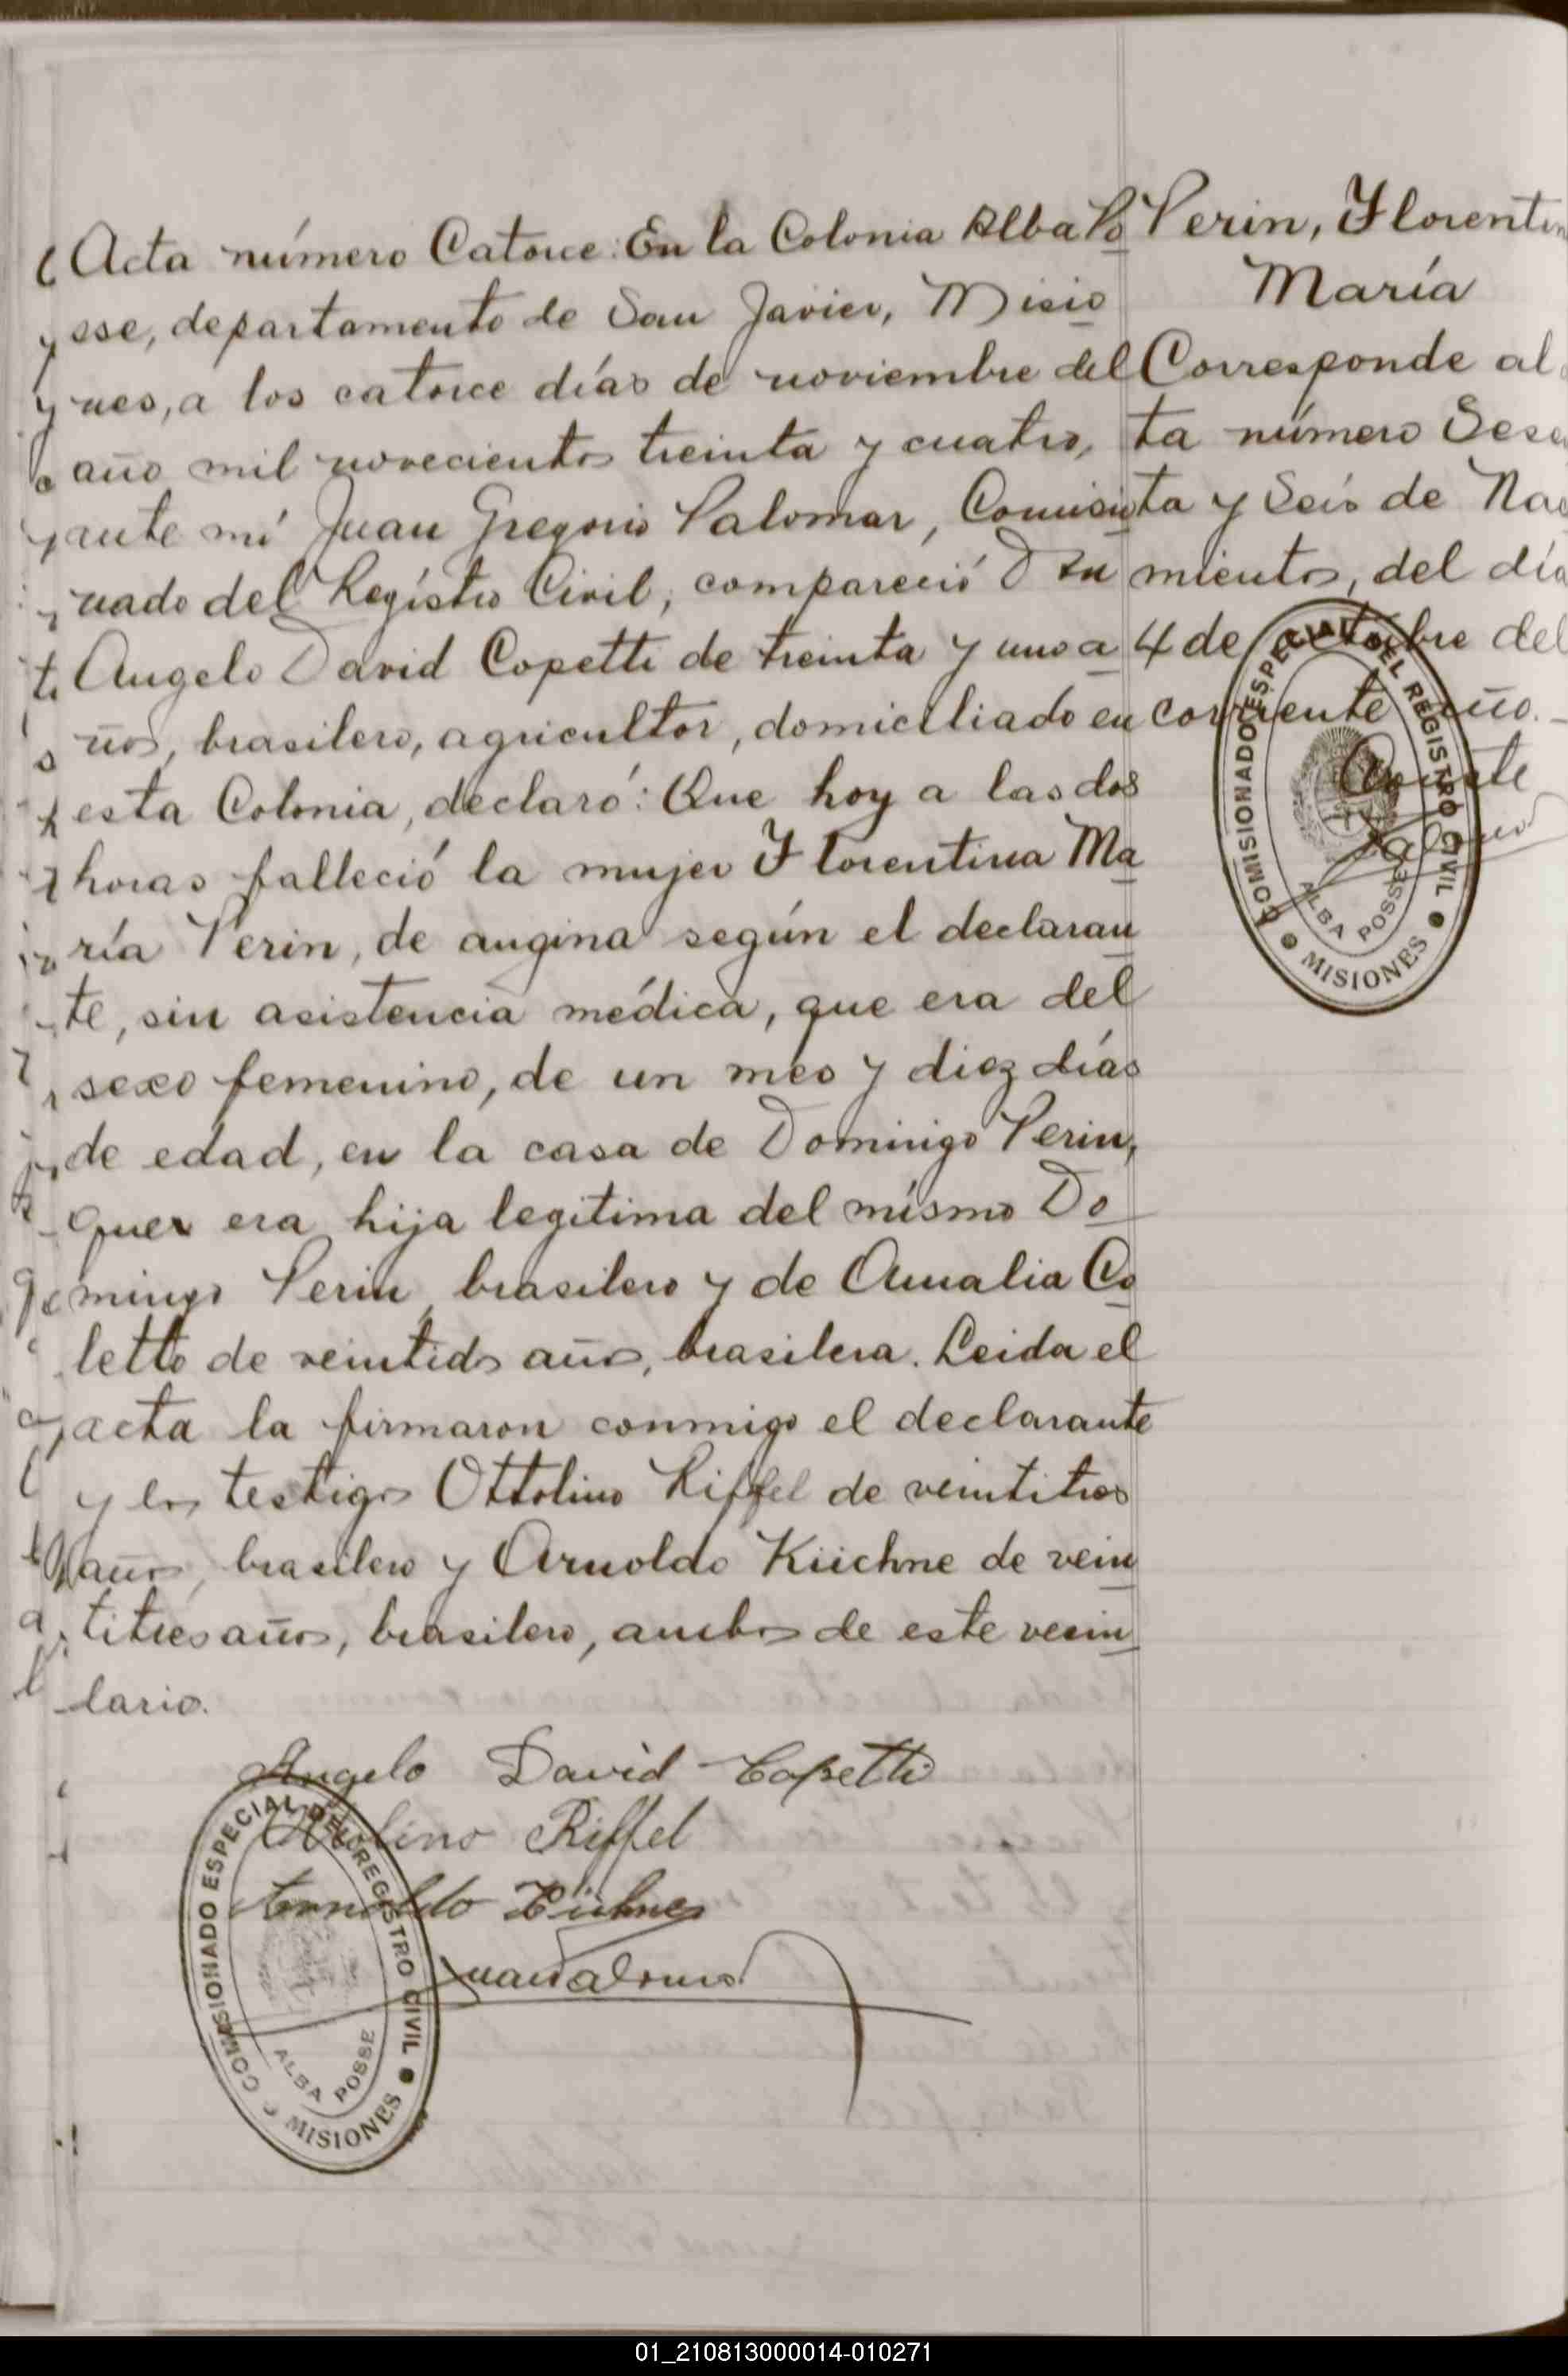 Acta número Catorce: En la Colonia Alba Po
sse, departamento de San Javier, Misio
nes, a los catorce días de noviembre del
año mil novecientos treinta y cuatro,
ante mí Juan Gregorio Palomar, Comisio
nado del Registro Civil, compareció Dn
Angelo David Copetti de treinta y uno a
ños, brasilero, agricultor, domiciliado en
esta Colonia, declaró: Que hoy a las dos
horas falleció la mujer Florentina Ma
ría Perin, de angina según el declaran
te, sin asistencia médica, que era del
sexo femenino, de un mes y diez días
de edad, en la casa de Domingo Perin,
que era hija legitima del mismo Do
mingo Perin, brasilero y de Amalia Co
letto de veintidos años, brasilera. Leida el
acta la firmaron conmigo el declarante
y los testigos Ottolino Riffel de veintitres
años, brasilero y Arnoldo Küchne de vein
titres años, brasilero, ambos de este vecin
dario.
Angelo David Copetti
Riffel
Arnoldo Kühne
COMISIONADO ESPECIAL DEL REGISTRO CIVIL
ALBA POSSE
MISIONES
Perin, Florentin
María
Corresponde al
ta número Sese
ta y Seis de Nac
mientos, del día
4 de octubre del
corriente año.
COMISIONADO ESPECIAL DEL REGISTRO CIVIL
ALBA POSSE
MISIONES
01_210813000014-010271